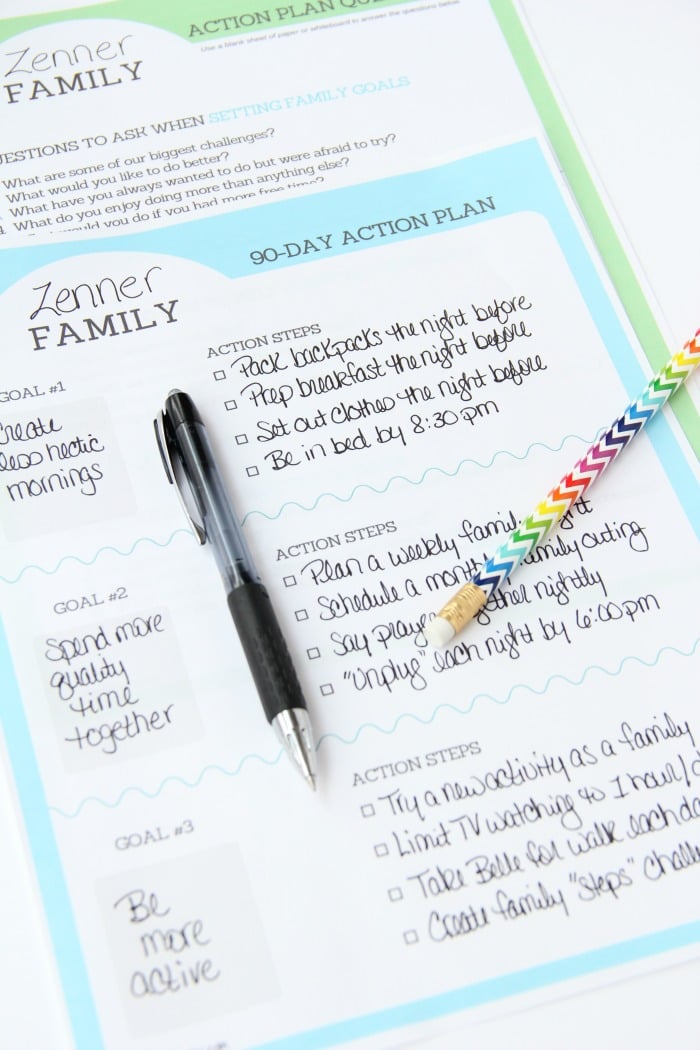 ACTION PLAN
Use a blank sheet of paper or whiteboard to answer the questions below
Zenner
FAMILY
QUESTIONS TO ASK WHEN SETTING FAMILY GOALS
What are some of our biggest challenges?
What would you like to do better?
What have you always wanted to do but were afraid to try?
What do you enjoy doing more than anything else?
would you do if you had more free time?
90-DAY ACTION PLAN
Zenner
FAMILY
GOAL #1
Create
less hectic
mornings
ACTION STEPS
Pack backpacks the night before
Prep breakfast the night before
Set out clothes the night before
Be in bed by 8:30 pm
GOAL #2
Spend more
quality
time
together
ACTION STEPS
Plan a weekly
Schedule a family outing
Say nightly
"Unplug" each night by 6:00 pm
GOAL #3
Be
more
active
ACTION STEPS
Try a new activity as a family
Limit TV watching to 1 hour/
Take Belle for walk each
Create family "steps"